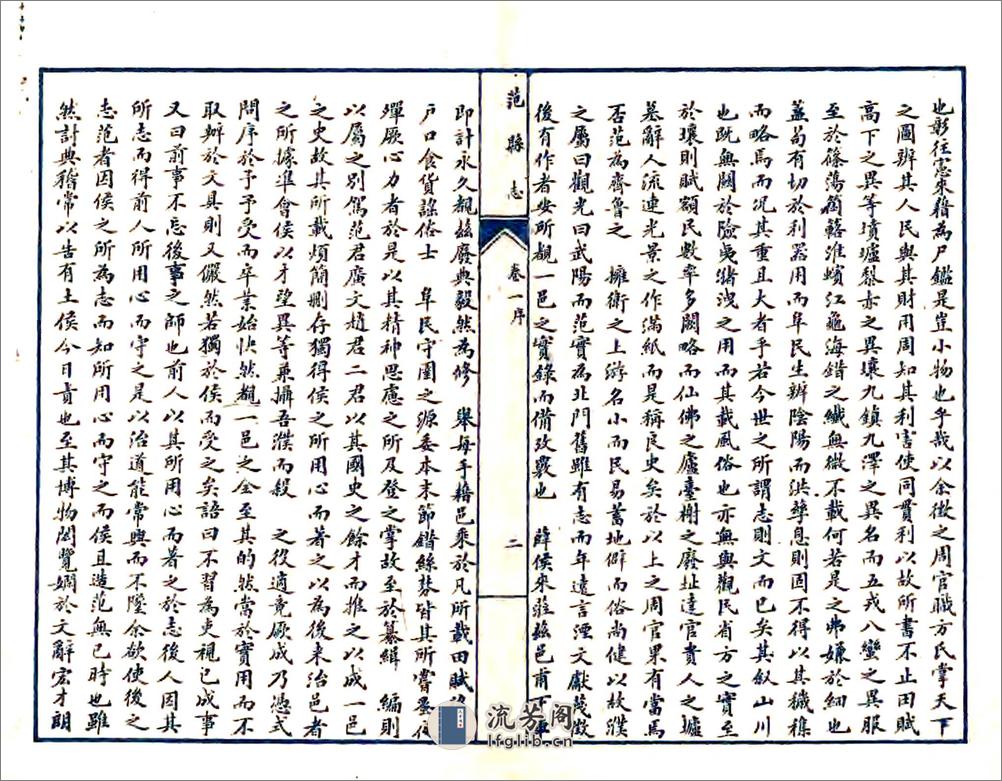 也彰往憲來藉為尸鑑是豈小物也乎哉以余徵之周官職方氏掌天下
之圖辦其人民與其財用周知其利害使同貫利以故所書不止田賦
高下之異等墳壚黎赤之異壤九鎮九澤之異名而五戎八蠻之異服
至於篠蕩箘簵淮蠙江龜海錯之纖無微不載何若是之弗嫌於細也
蓋苟有切於利器用而阜民生辦陰陽而洪孳息則固不得以其穢穕
而略焉而况其重且大者乎若今世之所謂志則文而已矣其叙山川
也既無關於險夷豬洩之用而其載風俗也亦無與觀民省方之實至
於壤則賦額民數率多闕略而仙佛之廬臺榭之廢址達官貴人之墟
墓辭人流連光景之作滿紙而是稱良史矣於以上之周官果有當焉
否范為齊魯之 擁衛之上游名小而民易蓄地僻而俗尚健以故濮
之屬曰觀光曰武陽而范實為北門舊雖有志而年遠言湮文獻莫徵
後有作者安所覩一邑之實錄而備攷覈也 薛侯來莅茲邑甫下車
范縣志
卷一序
二
即計永久覩茲廢典毅然為修 舉每手藉邑乘於凡所載田賦
戶口食貨謡俗士 阜民守圉之源委本末節鍇絲棼皆其所嘗
殫厥心力者於是以其精神思慮之所及登之掌故至於纂緝 編則
以屬之别駕范君廣文趙君二君以其國史之餘才而推之以成一邑
之史故其所載煩簡删存獨得侯之所用心而著之以為後来治邑者
之所據準會侯以才望異等兼攝吾濮而殺 之役適竟厥成乃憑式
問序於予予受而卒業始快然覩一邑之全至其的然當於實用而不
取辦於文具則又儼然若獨於侯而受之矣語曰不習為吏視已成事
又曰前事不忘後事之師也前人以其所用心而著之於志後人因其
所志而得前人所用心而守之是以治道能常興而不墜余欲使後之
志范者因侯之所為志而知所用心而守之而侯且造范無已時也雖
然計典稽常以告有土侯今日責也至其博物閎覽嫻於文辭宏才朗
流芳阁
lfglib.cn